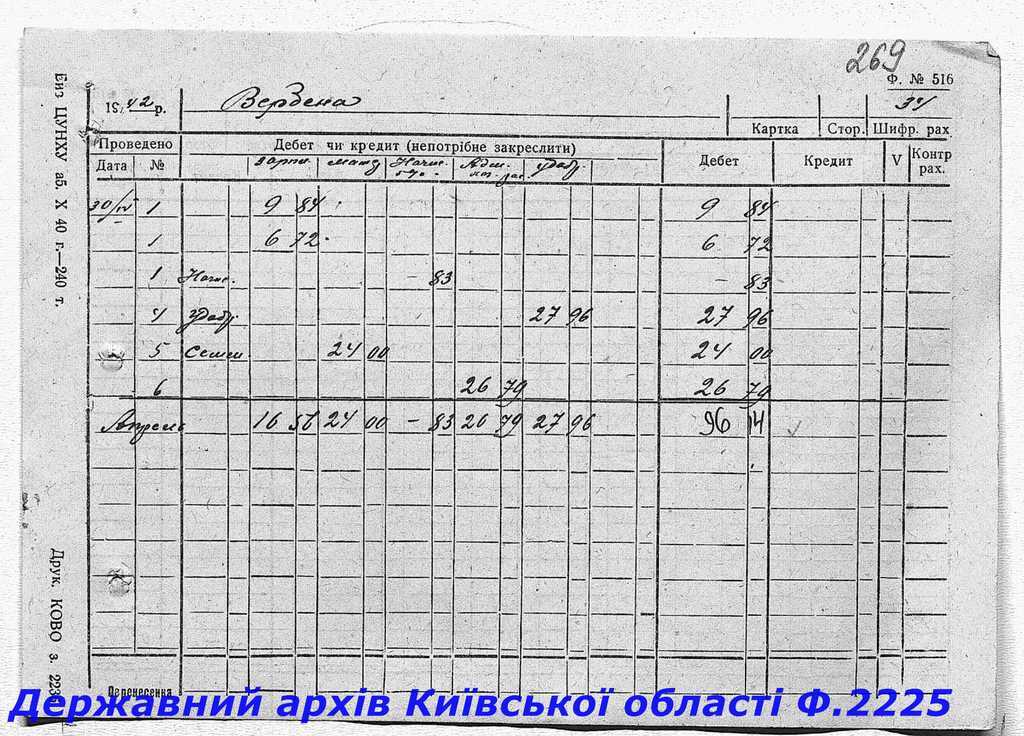 269
Ф. № 516
1942 р. Вербена 34
Картка Стор. Шифр. рах
Проведено Дебет чи кредит (непотрібне закреслити) Дебет Кредит V Контр рах.
Дата № матер Начис. Адм. удобр
30/IV 1 9 84 9 84
1 6 72 6 72
1 Начис. - 83 - 83
4 удобр 27 96 27 96
5 Семен 24 00 24 00
6 26 79 26 79
Апрель 16 56 24 00 - 83 26 79 27 96 96 14
Перенесення
Биз ЦУНХУ аб. X 40 г.—240 т.
Друк. КОВО з. 223
Державний архів Київської області Ф.2225